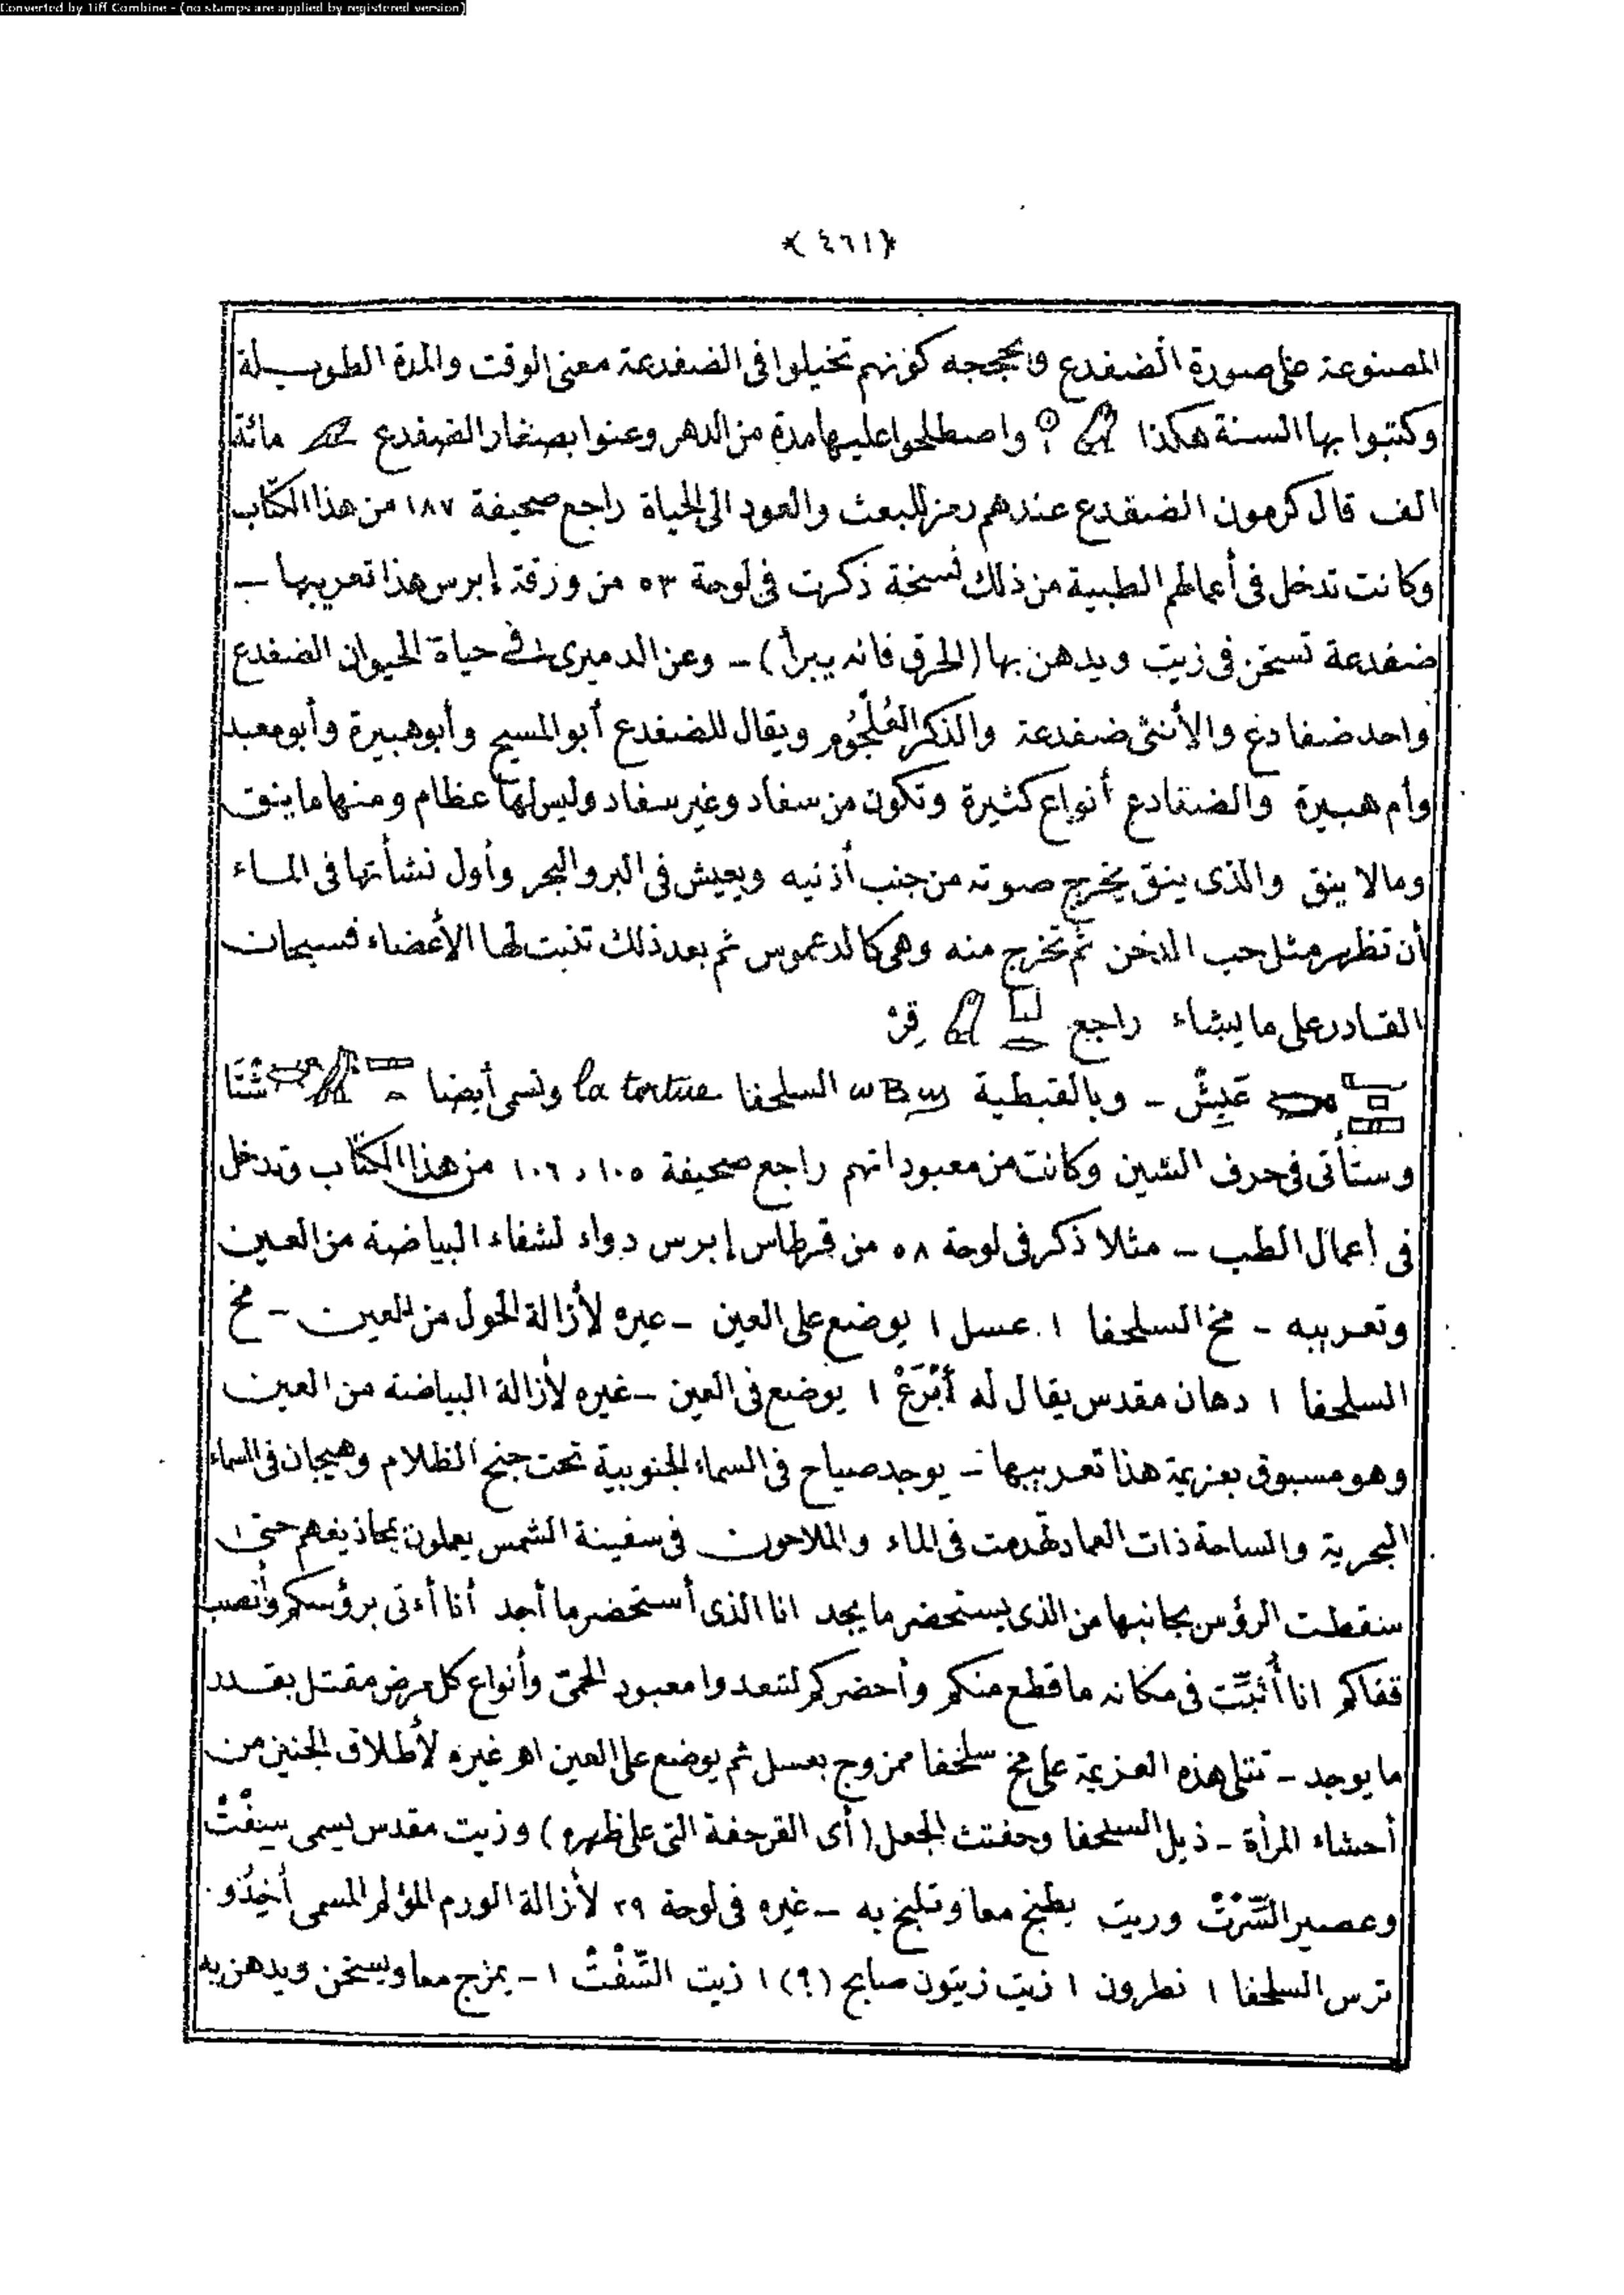 Converted by Tiff Combine - (no stamps are applied by registered version)
﴿٤٦١﴾
المصنوعة على صورة الضفدع وبحجمه كونهم تخيلوا فى الضفدعة معنى الوقت والمدة الطويلة
وكتبوا بها السنة هكذا واصطلحوا عليها مدة من الدهر وعنوا بصغار الضفدع مائة
الف قال كرمون الضفدع عندهم رمز للبعث والعود الى الحياة راجع صحيفة ١٨٧ من هذا الكتاب
وكانت تدخل فى أعمالهم الطبية من ذلك نسخة ذكرت فى لوحة ٥٣ من ورقة إبرس هذا تعريبها —
ضفدعة تسخن فى زيت ويدهن بها (الحرق فانه يبرأ) — وعن الدميرى فى حياة الحيوان الضفدع
واحد ضفادع والأنثى ضفدعة والذكر العُلْجُوم ويقال للضفدع أبو المسيح وأبو هبيرة وأبو معبد
وأم هبيرة والضفادع أنواع كثيرة وتكون من سفاد وغير سفاد وليس لها عظام ومنها ما ينق
وما لا ينق والذى ينق يخرج صوته من جنب أذنيه ويعيش فى البر والبحر وأول نشأتها فى الماء
أن تظهر مثل حب الدخن ثم تخرج منه وهى كالدعموص ثم بعد ذلك تنبت لها الأعضاء فسبحان
القادر على ما يشاء راجع قِرْ
عَبِشْ — وبالقبطية ωΒϣ السلحفا la tortue وتسمى أيضا شْتَا
وستأتى فى حرف الشين وكانت من معبوداتهم راجع صحيفة ١٠٥ , ١٠٦ من هذا الكتاب وتدخل
فى أعمال الطب — مثلا ذكر فى لوحة ٥٨ من قرطاس إبرس دواء لشفاء البياضة من العين
وتعريبه — مخ السلحفا ١ عسل ١ يوضع على العين — غيره لأزالة الحول من العين — مخ
السلحفا ١ دهان مقدس يقال له أَبْرَعْ ١ يوضع فى العين — غيره لأزالة البياضة من العين
وهو مسبوق بعزيمة هذا تعريبها — يوجد صياح فى السماء الجنوبية تحت جنح الظلام وهيجان فى السماء
البحرية والساحة ذات العماد تهدمت فى الماء والملاحون فى سفينة الشمس يعملون بمجاذيفهم حتى
سقطت الرؤس بجانبها من الذى يستحضر ما يجد انا الذى أستحضر ما أجد أنا أءتى برؤسكم وأنصب
قفاكم انا أُثبّت فى مكانه ما قطع منكم وأحضركم لتبعدوا معبود الحمىّ وأنواع كل مرض مقتل بقدر
ما يوجد — تتلى هذه العزيمة على مخ سلحفا ممزوج بعسل ثم يوضع على العين اهـ غيره لأطلاق الجنين من
أحشاء المرأة — ذبل السلحفا وجفتث الجعل (أى القرجفة التى على ظهره) وزيت مقدس يسمى سِيفْتْ
وعصير السَّرْتْ وزيت يطبخ معا وتلبخ به — غيره فى لوحة ٢٩ لأزالة الورم المؤلم المسمى أَخِدُو
ترس السلحفا ١ نطرون ١ زيت زيتون صابح (؟) ١ زيت السِّفْتْ ١ — يمزج معا ويسخن ويدهن به